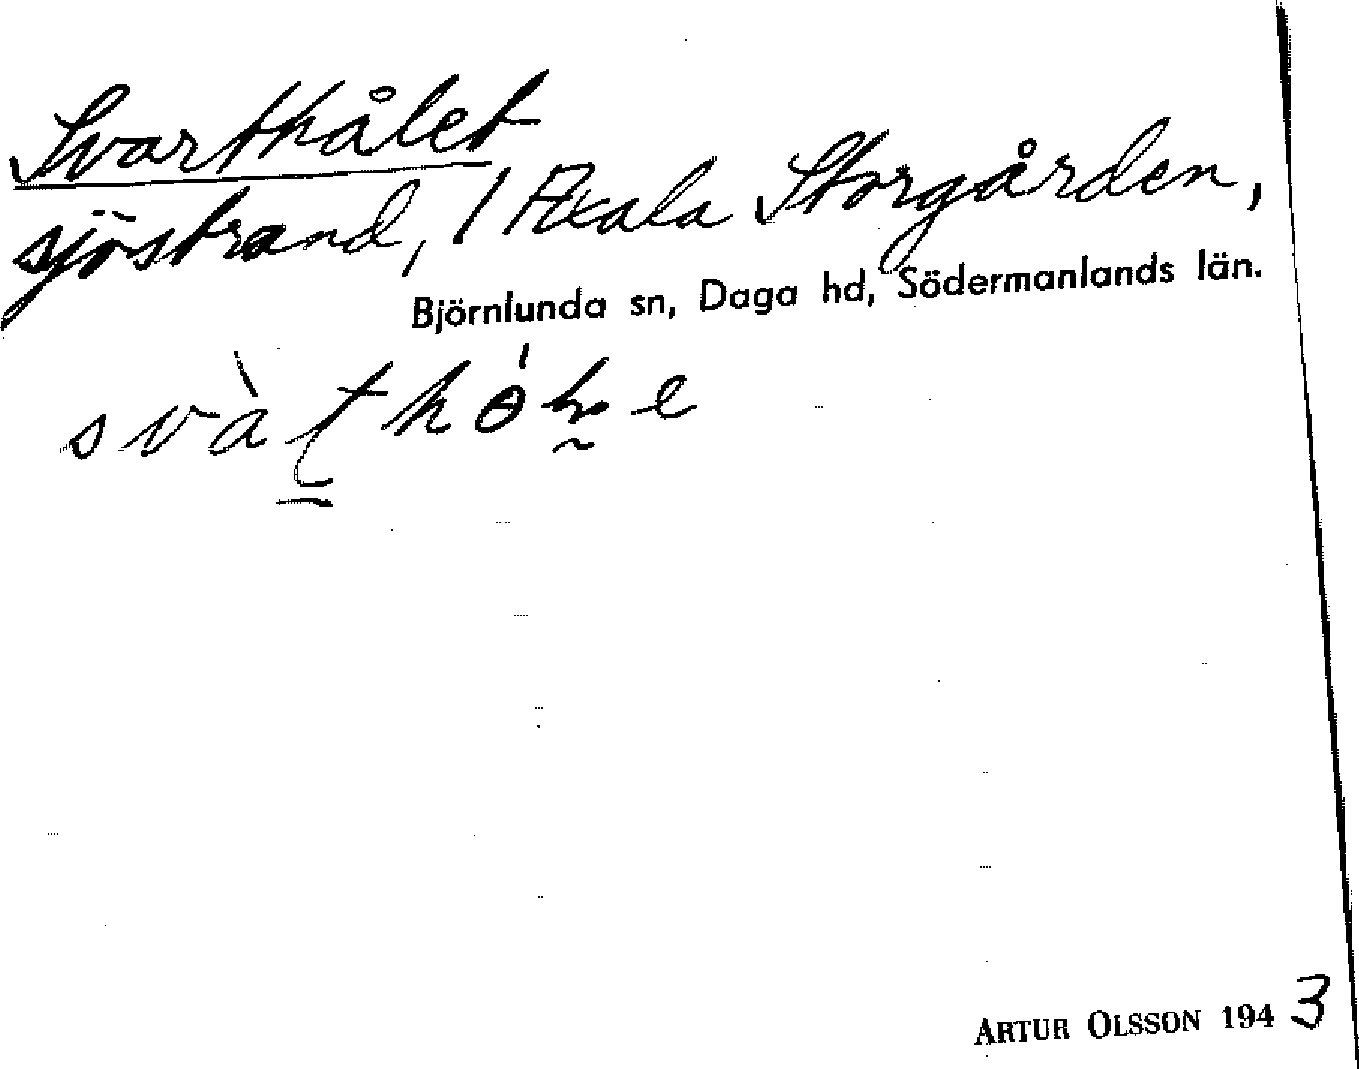 Svarthålet
sjöstrand, 1 Axala Storgården,
Björnlunda sn, Daga hd, Södermanlands län.
ARTUR OLSSON 1943